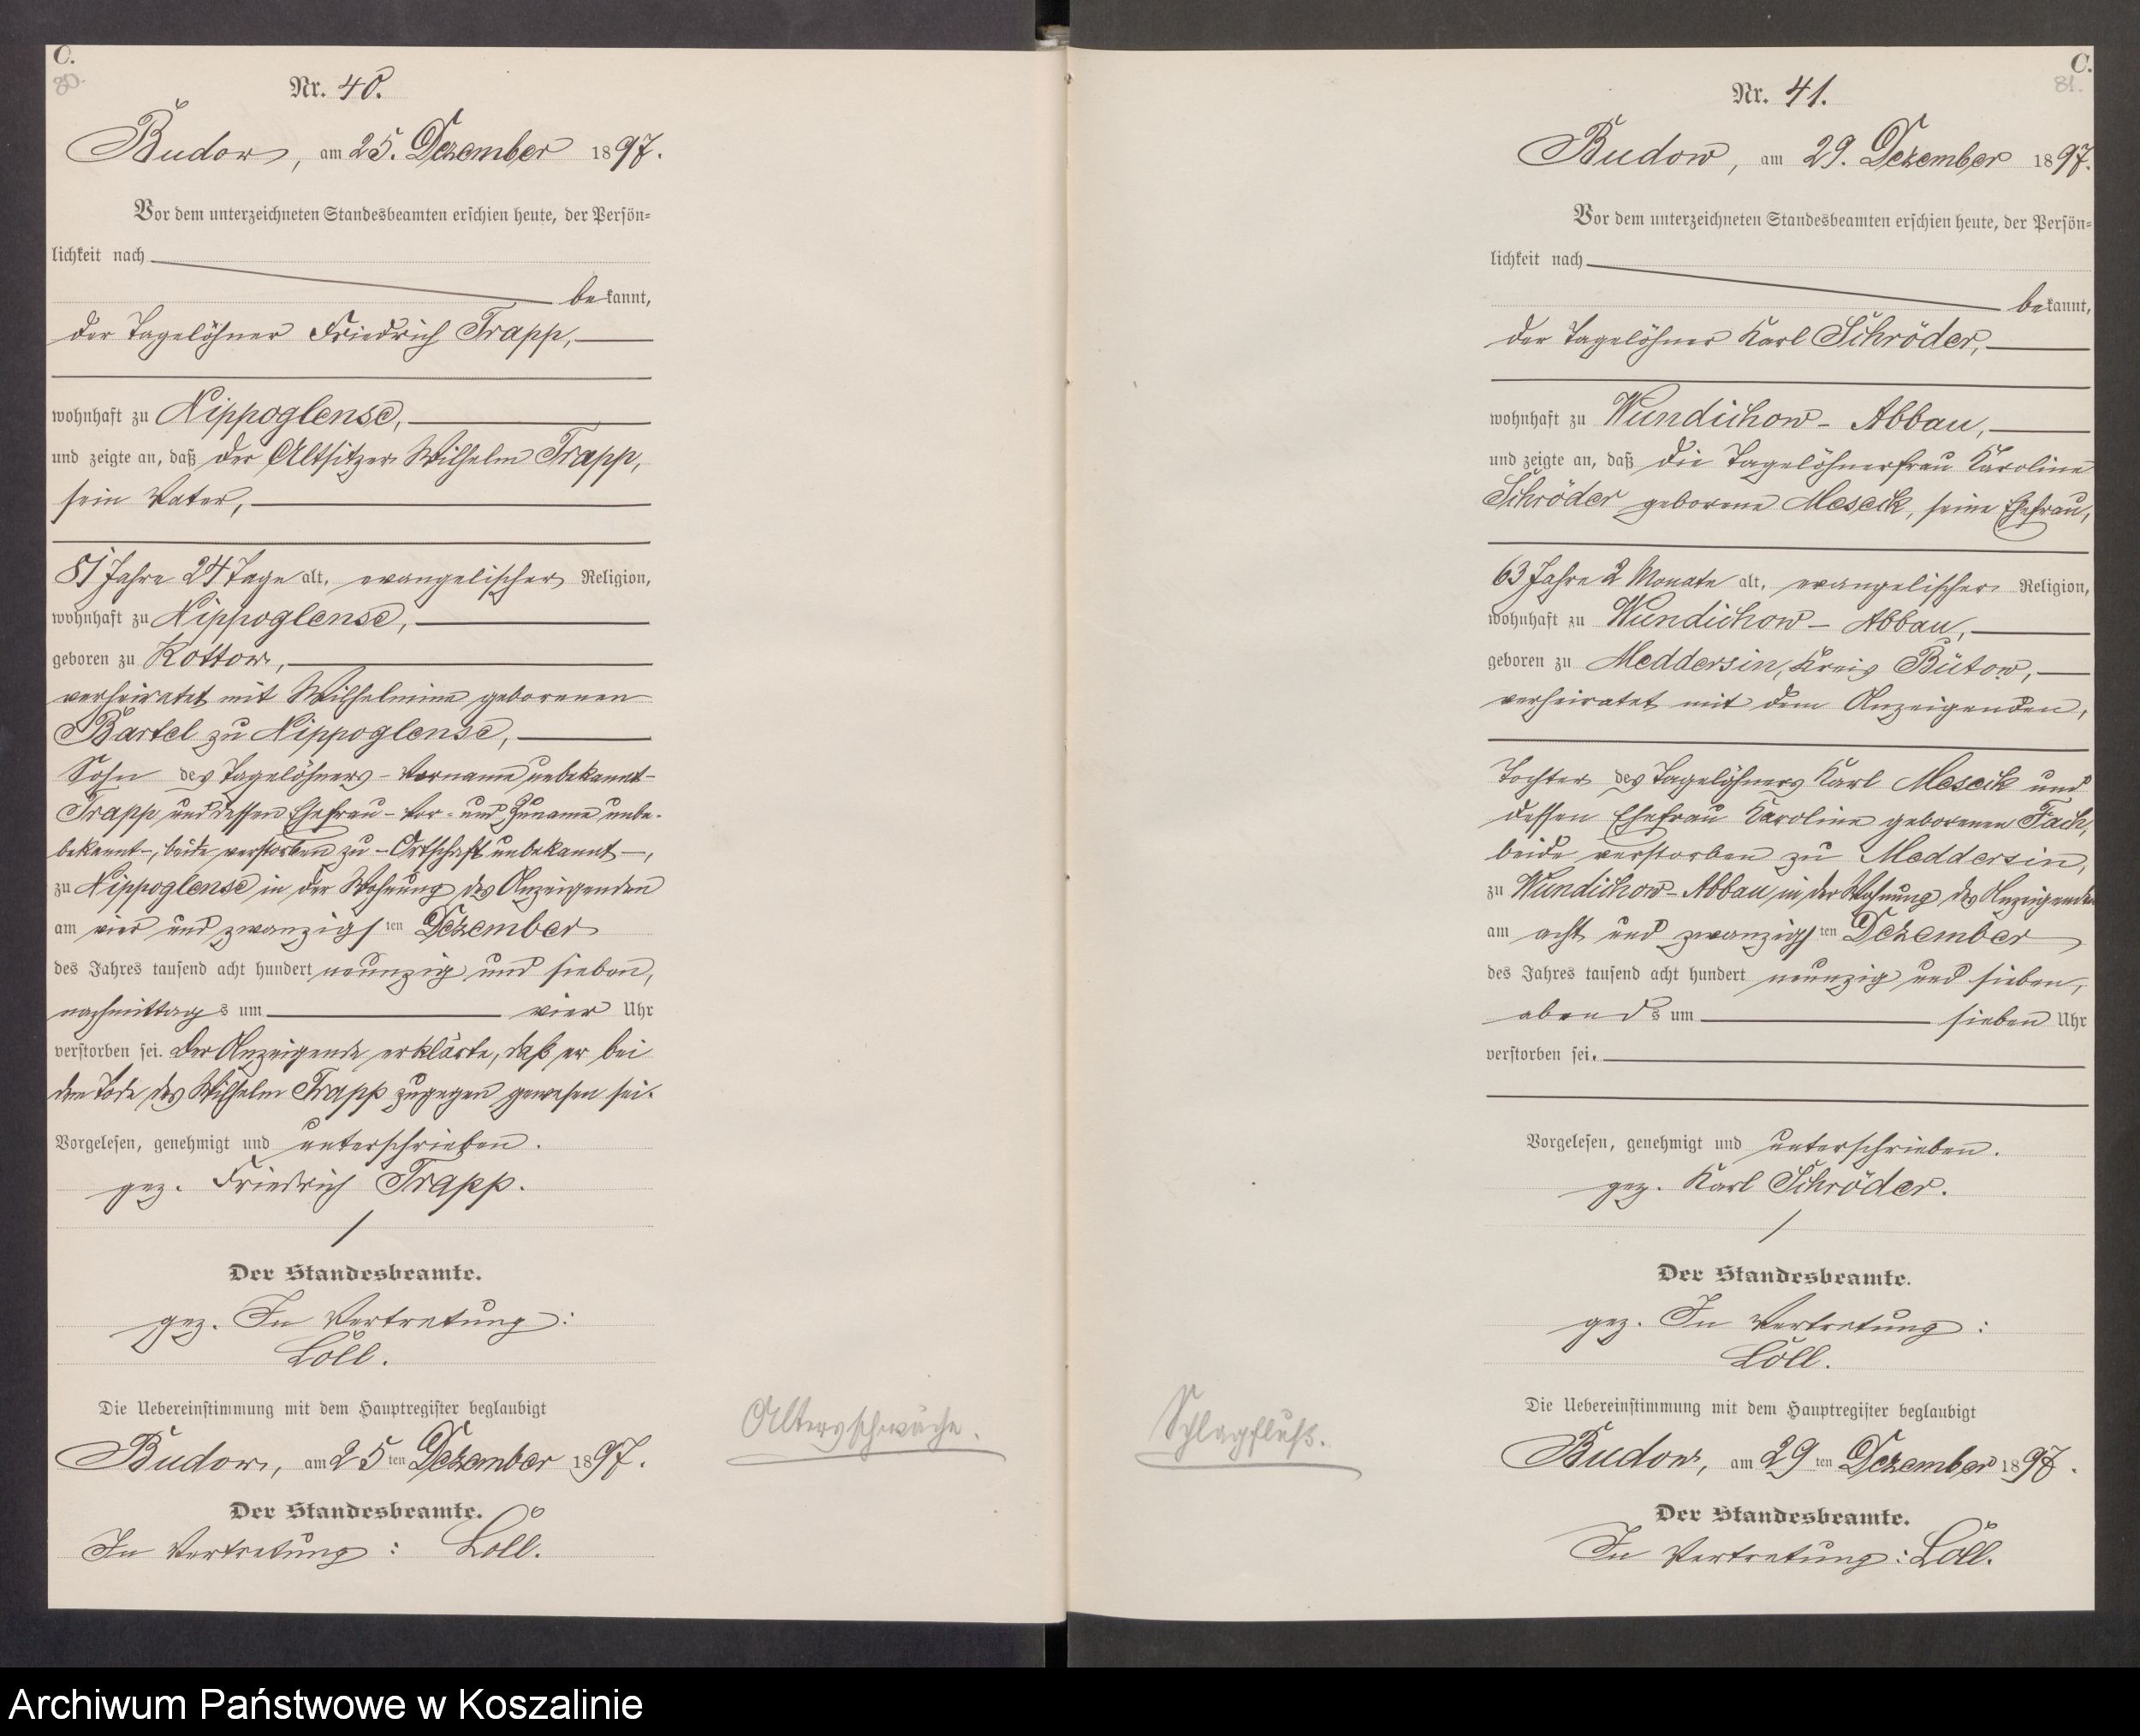 C.
80.
Nr. 40.
Budow, am 25. Dezember 1897.
Vor dem unterzeichneten Standesbeamten erschien heute, der Persön=
lichkeit nach
bekannt,
der Tagelöhner Friedrich Trapp,
wohnhaft zu Nippoglense,
und zeigte an, daß der Altsitzer Wilhelm Trapp,
sein Vater,
81 Jahre 24 Tage alt, evangelischer Religion,
wohnhaft zu Nippoglense,
geboren zu Kottow,
verheiratet mit Wilhelmine geborenen
Bartel zu Nippoglense,
Sohn des Tagelöhners - Vorname unbekannt -
Trapp und dessen Ehefrau - Vor- und Zuname unbe-
bekannt -, beide verstorben zu - Ortschaft unbekannt -,
zu Nippoglense in der Wohnung des Anzeigenden
am vier und zwanzigsten Dezember
des Jahres tausend acht hundert neunzig und sieben,
nachmittags um vier Uhr
verstorben sei. Der Anzeigende erklärte, daß er bei
dem Tode des Wilhelm Trapp zugegen gewesen sei.
Vorgelesen, genehmigt und unterschrieben.
gez. Friedrich Trapp.
Der Standesbeamte.
gez. In Vertretung:
Löll.
Die Uebereinstimmung mit dem Hauptregister beglaubigt
Budow, am 25ten Dezember 1897.
Der Standesbeamte.
In Vertretung: Löll.
Altersschwäche.
C.
81.
Nr. 41.
Budow, am 29. Dezember 1897.
Vor dem unterzeichneten Standesbeamten erschien heute, der Persön=
lichkeit nach
bekannt,
der Tagelöhner Karl Schröder,
wohnhaft zu Wundichow - Abbau,
und zeigte an, daß die Tagelöhnerfrau Karoline
Schröder geborene Meseck, seine Ehefrau,
63 Jahre 2 Monate alt, evangelischer Religion,
wohnhaft zu Wundichow - Abbau,
geboren zu Meddersin, Kreis Bütow,
verheiratet mit dem Anzeigenden,
Tochter des Tagelöhners Karl Meseck und
dessen Ehefrau Karoline geborenen Fach,
beide verstorben zu Meddersin,
zu Wundichow - Abbau in der Wohnung des Anzeigenden
am acht und zwanzigsten Dezember
des Jahres tausend acht hundert neunzig und sieben,
abends um sieben Uhr
verstorben sei.
Vorgelesen, genehmigt und unterschrieben.
gez. Karl Schröder.
Der Standesbeamte.
gez. In Vertretung:
Löll.
Die Uebereinstimmung mit dem Hauptregister beglaubigt
Budow, am 29ten Dezember 1897.
Der Standesbeamte.
In Vertretung: Löll.
Schlagfluß.
Archiwum Państwowe w Koszalinie